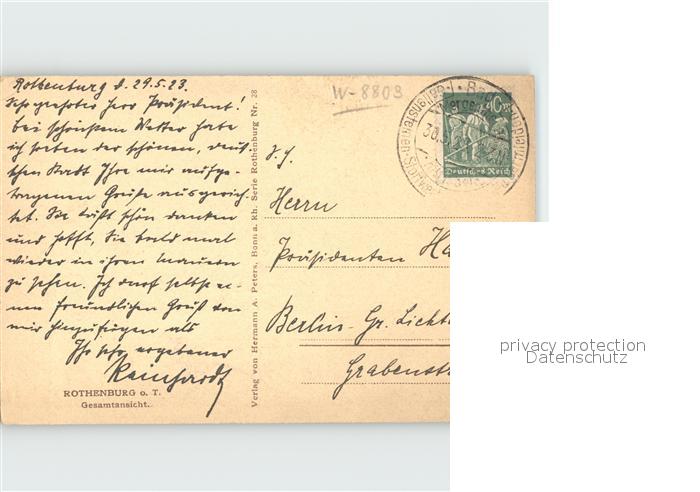 Rothenburg d. 29.5.23.
Sehr geehrter Herr Präsident!
Bei schönstem Wetter habe
ich soeben der schönen, deut-
schen Stadt Ihre mir aufge-
tragenen Grüße ausgerich-
tet. Sie läßt schön danken
und hofft, Sie bald mal
wieder in ihren Mauern
zu sehen. Ich darf selbst ei-
nen freundlichen Gruß von
mir hinzufügen als
Ihr sehr ergebener
Reinhardt
ROTHENBURG o. T.
Gesamtansicht.
Verlag von Hermann A. Peters, Bonn a. Rh. Serie Rothenburg Nr. 28
W-8803
Deutsches Reich
Herrn
Präsidenten
Berlin-Gr. Licht
Grabenst
privacy protection
Datenschutz